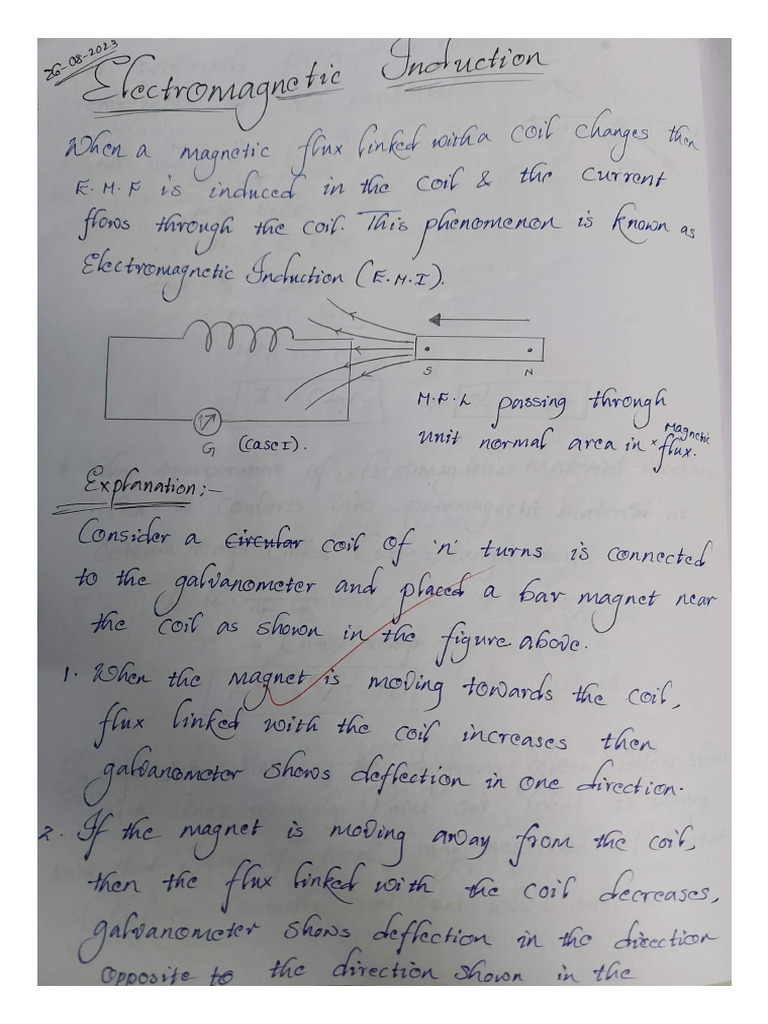 26-08-2023
Electromagnetic Induction
When a magnetic flux linked with a coil changes then
E.M.F is induced in the coil & the current
flows through the coil. This phenomenon is known as
Electromagnetic Induction (E.M.I).
S N
G (Case I).
M.F.L passing through
unit normal area in × Magnetic flux.
Explanation:-
Consider a circular coil of 'n' turns is connected
to the galvanometer and placed a bar magnet near
the coil as shown in the figure above.
1. When the magnet is moving towards the coil,
flux linked with the coil increases then
galvanometer shows deflection in one direction.
2. If the magnet is moving away from the coil,
then the flux linked with the coil decreases,
galvanometer shows deflection in the direction
opposite to the direction shown in the